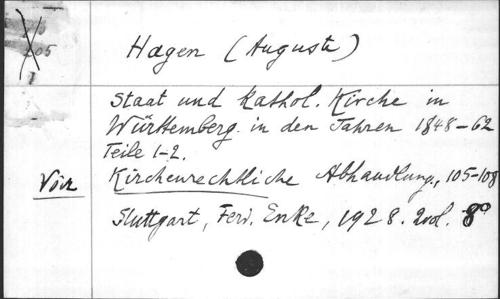 05
Hagen (Auguste)
Staat und kathol. Kirche in
Württemberg in den Jahren 1848-62
Teile 1-2.
Voir Kirchenrechtliche Abhandlung, 105-108
Stuttgart, Ferd. Enke, 1928. 2vol. 8°